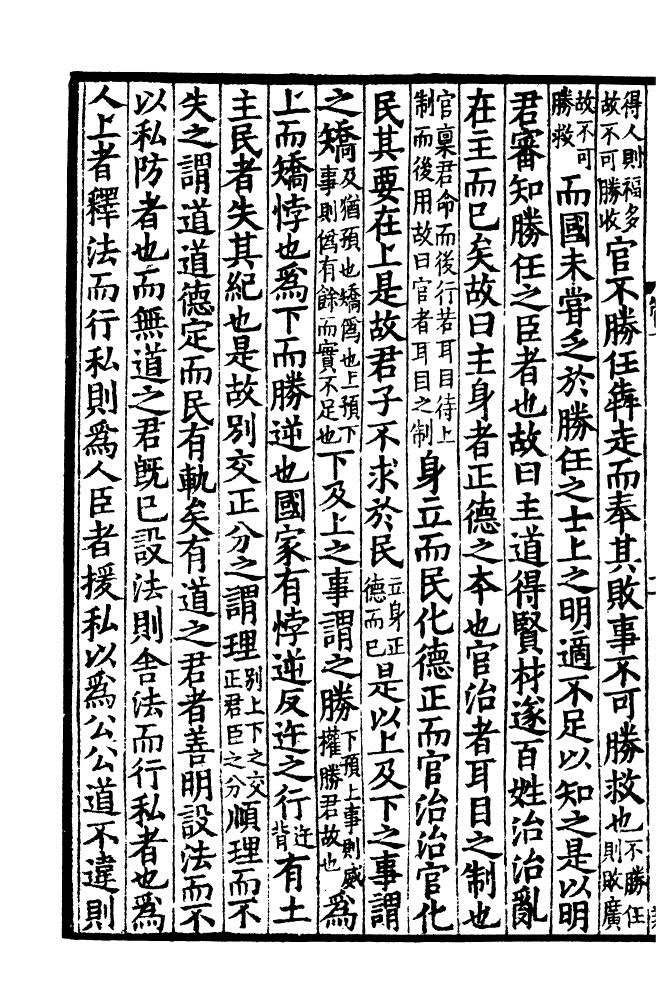 得人則福多故不可勝收官不勝任犇走而奉其敗事不可勝救也不勝任則敗廣
故不可勝救而國未嘗乏於勝任之士上之明適不足以知之是以明
君審知勝任之臣者也故曰主道得賢材遂百姓治治亂
在主而已矣故曰主身者正德之本也官治者耳目之制也
官稟君命而後行若耳目待上制而後用故曰官者耳目之制身立而民化德正而官治治官化
民其要在上是故君子不求於民立身正德而已是以上及下之事謂
之矯及猶預也矯僞也上預下事則僞有餘而實不足也下及上之事謂之勝下預上事則威權勝君故也爲
上而矯悖也爲下而勝逆也國家有悖逆反迕之行迕背有土
主民者失其紀也是故別交正分之謂理別上下之交正君臣之分順理而不
失之謂道道德定而民有軌矣有道之君者善明設法而不
以私防者也而無道之君旣已設法則舍法而行私者也爲
人上者釋法而行私則爲人臣者援私以爲公公道不違則